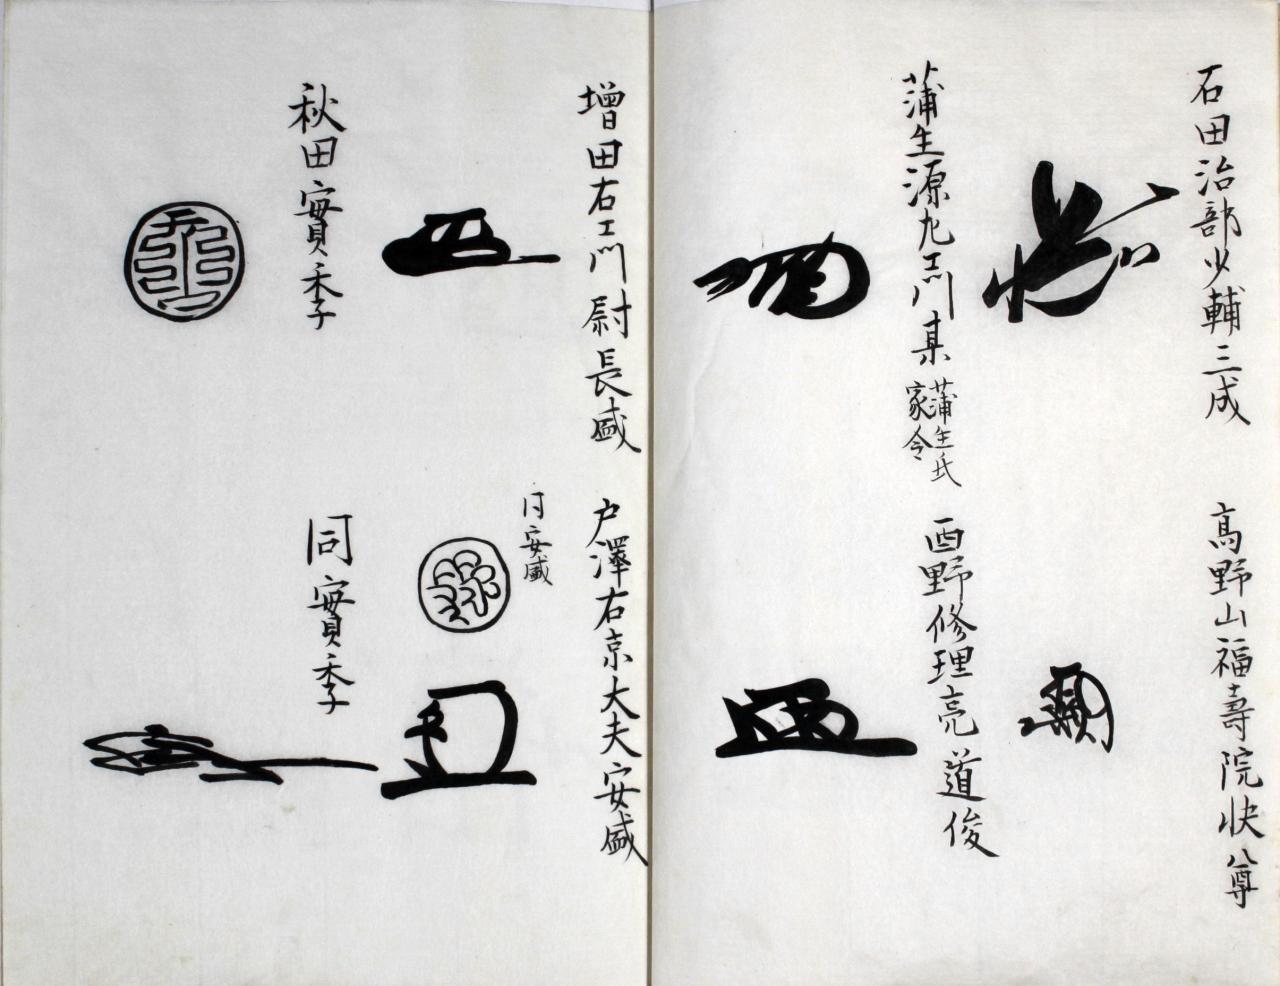 石田治部少輔三成
高野山福壽院快尊
蒲生源左衛門某
蒲生氏
家令
西野修理亮道俊
増田右衛門尉長盛
戸澤右京大夫安盛
同安盛
秋田實季
同實季